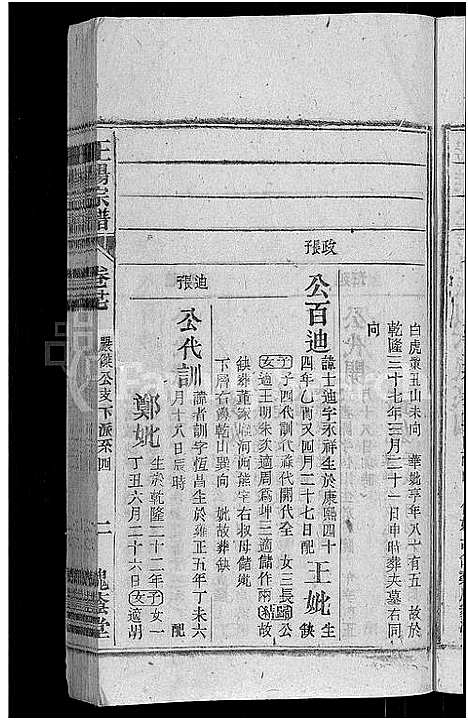 白虎嘴丑山未向 華妣享年八十有五 故於
乾隆三十七年三月二十一日申時葬夫墓右同
向
政張
公百迪
諱士迪字永祥生於康熙四十
四年乙酉又四月二十七日配
王妣
生缺
子四代訓代祿代開代全 女三長歸公
女適王明朱次適周為坤三適儲作兩
故缺葬董家
河兩熊字右叔母儲妣
下層右為乾山巽向 妣故葬缺
迪張
公代訓
諱者訓字恆昌生於雍正五年丁未六
月十八日辰時
配
鄭妣
生於乾隆二十二年
子一
丁丑六月二十六日
女適胡
王楊宗譜
卷廿
公支下派系四
二
槐蔭堂